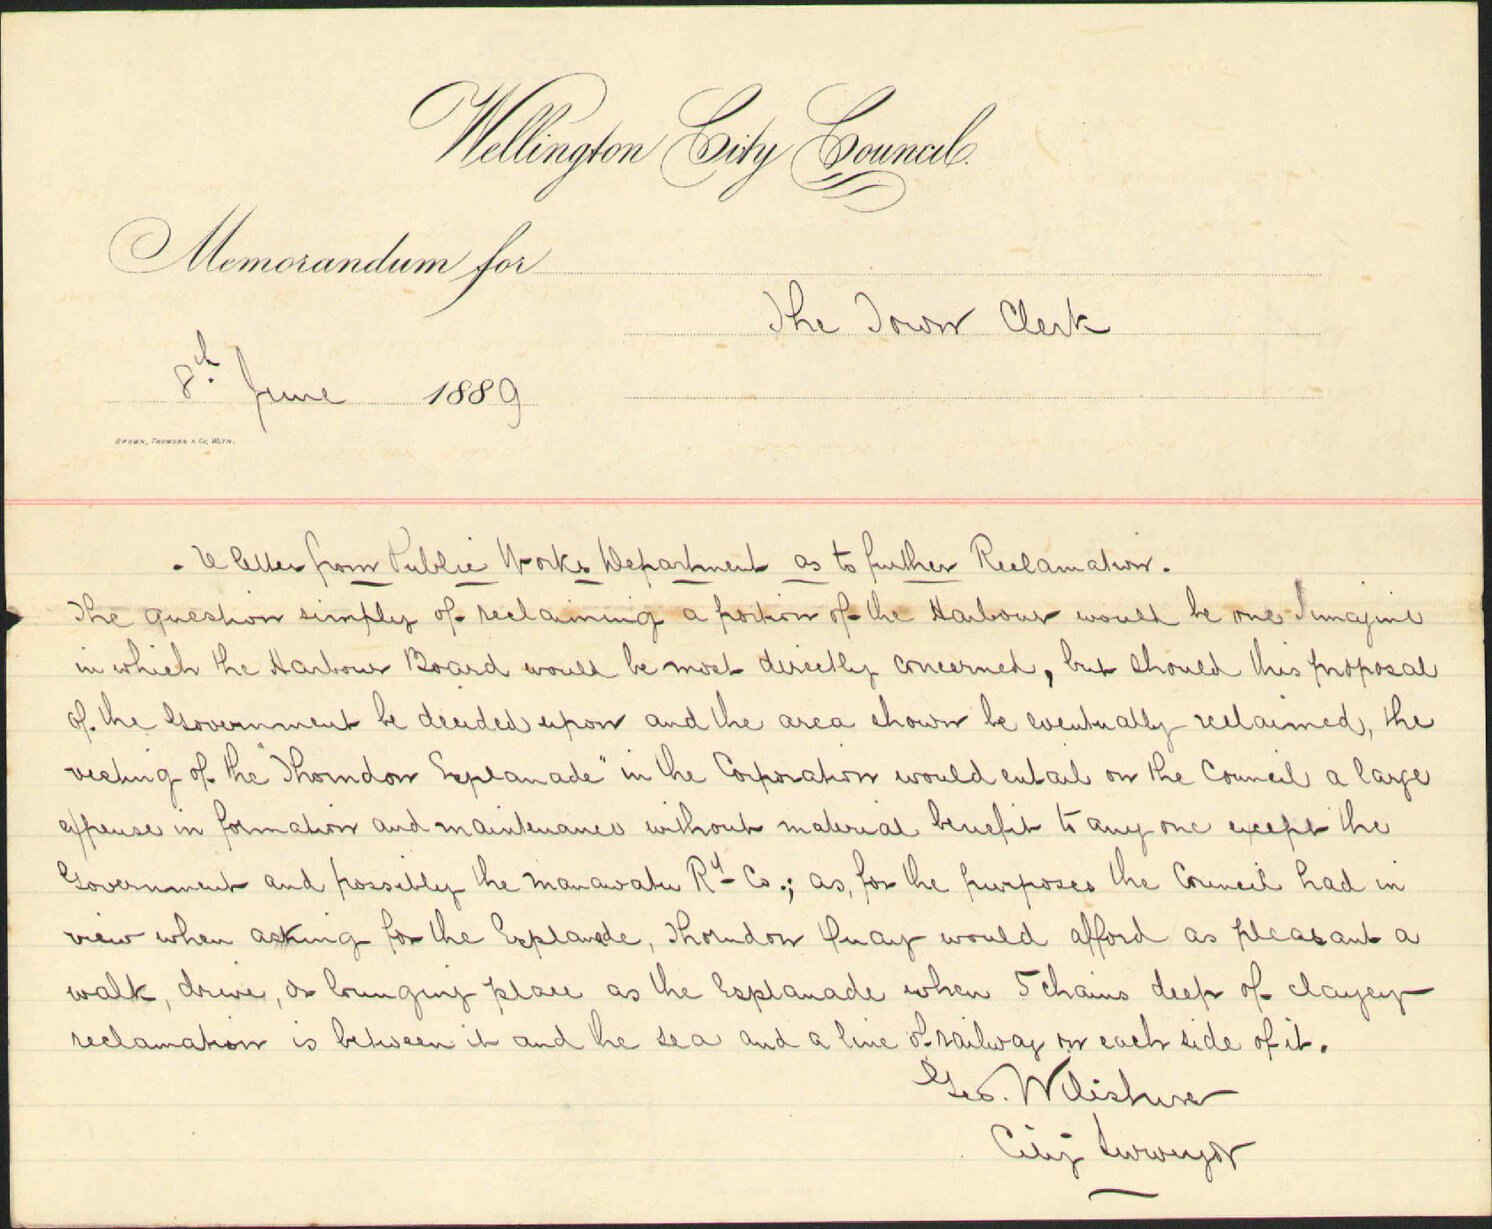 Wellington City Council.
Memorandum for
The Town Clerk
8th June 1889
Brown, Thomson & Co, Wgtn.
Re letter from Public Works Department as to further Reclamation.
The question simply of reclaiming a portion of the Harbour would be one I imagine
in which the Harbour Board would be most directly concerned, but should this proposal
of the Government be decided upon and the area shown be eventually reclaimed, the
vesting of the "Thorndon Esplanade" in the Corporation would entail on the Council a large
expense in formation and maintenance without material benefit to any one except the
Government and possibly the Manawatu Ry Co.; as, for the purposes the Council had in
view when asking for the Esplanade, Thorndon Quay would afford as pleasant a
walk, drive, or lounging place as the Esplanade when 5 chains deep of clayey
reclamation is between it and the sea and a line of railway on each side of it.
Geo. Wiltshire
City Surveyor